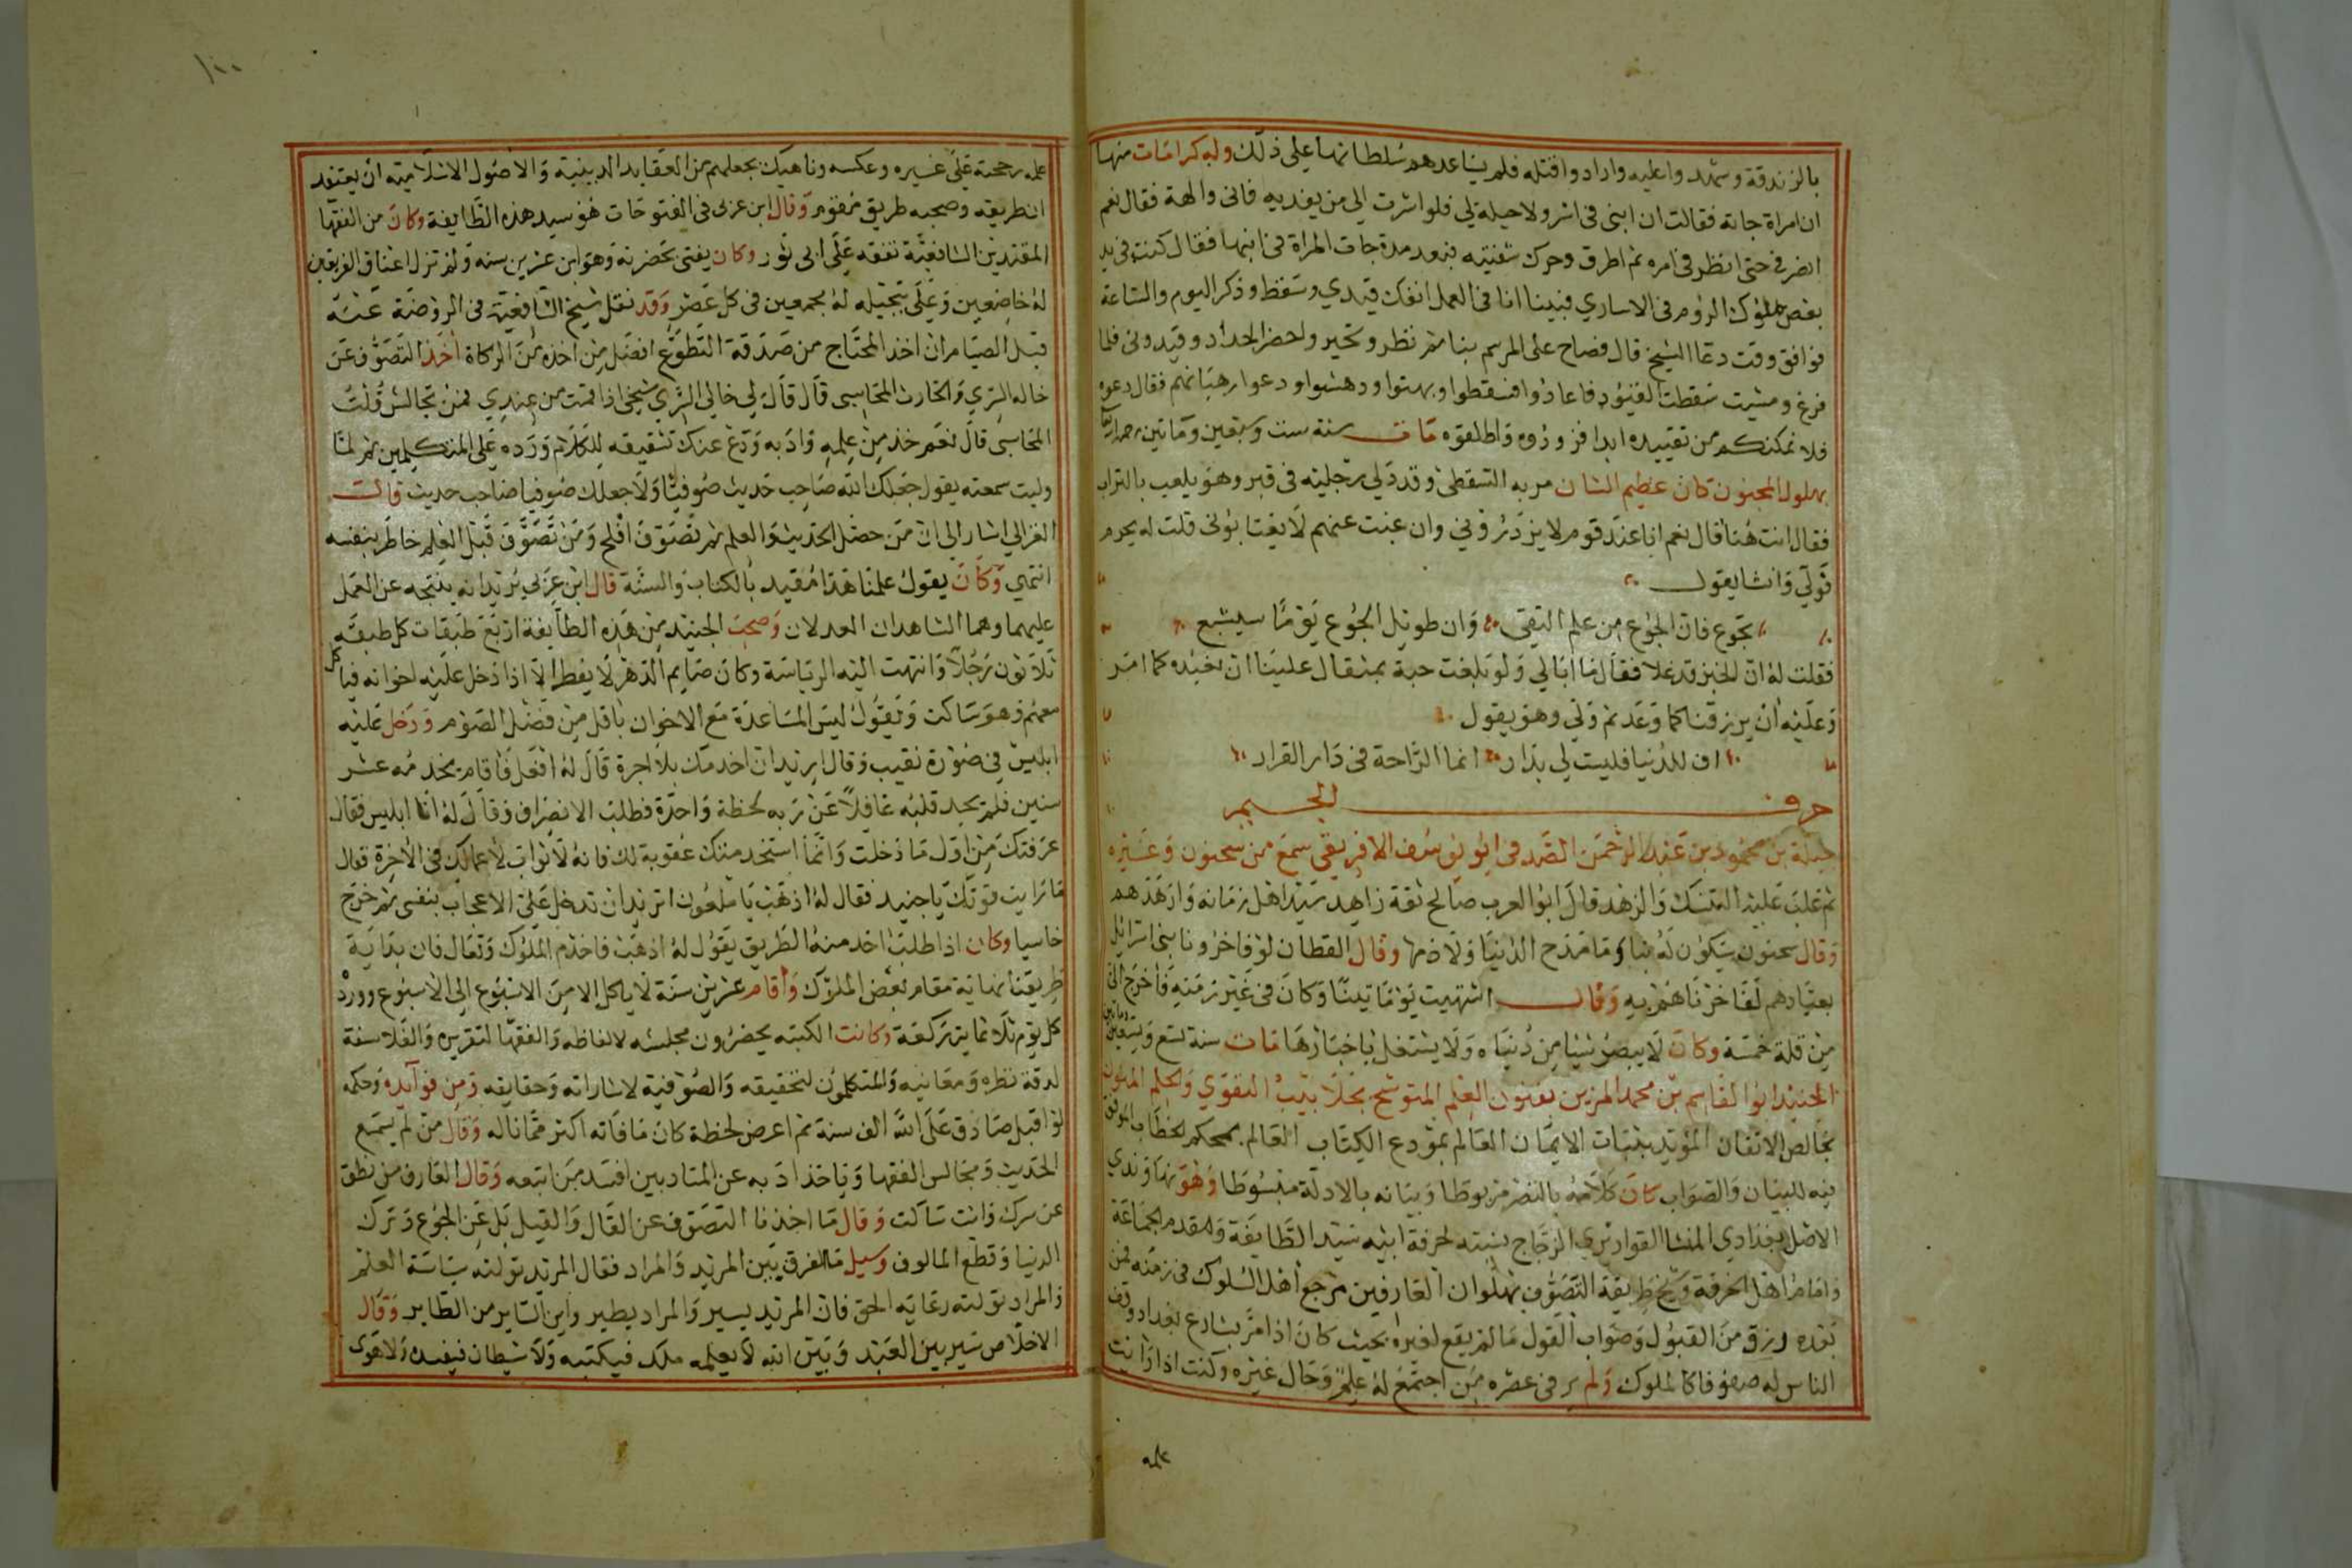 بالزندقة وشهدوا عليه وارادوا قتله فلم يساعدهم سلطانها على ذلك وله كرامات منها
ان امراة جاته فقالت ان ابني في اسر ولا حيلة لي فلو اشرت الي من يفديه فاني والهة فقال نعم
انصرفي حتى انظر في امره ثم اطرق وحرك شفتيه فبعد مدة جات المراة في ابنها فقال كنت في يد
بعض ملوك الروم في الاساري فبينا انا في العمل انفك قيدي وسقط وذكر اليوم والساعة
فوافق وقت دعا الشيخ قال فصاح على المرسم بنا ثم نظر وتحير واحضر الحداد وقيدوني فلما
فرغ ومشيت سقطت القيود فاعادوا فسقطوا وبهتوا ودهشوا ودعوا رهبانهم فقال دعوه
فلا نمكنكم من تقييده ابدا فزودوه واطلقوه مات سنة ست وسبعين وماتين رحمه الله
بهلول المجنون كان عظيم الشان مر به السقطي وقد دلي رجليه في قبر وهو يلعب بالتراب
فقال انت هنا قال نعم انا عند قوم لا يزدروني وان غبت عنهم لا يغتابوني قلت له
فولي وانشا يقول
تجوع فان الجوع من علم التقى وان طويل الجوع يوما سيشبع
فقلت له ان الخبز قد غلا فقال ما ابالي ولو بلغت حبة بمثقال علينا ان نعبده كما امر
وعليه ان يرزقنا كما وعد ثم ولي وهو يقول
اف للدنيا فليست لي بدار انما الراحة في دار القرار
حرف الجيم
جبلة بن محمود بن عبد الرحمن الصدفي ابو يوسف الافريقي سمع من سحنون وغيره
ثم غلب عليه التنسك والزهد قال ابو العرب صالح ثقة زاهد سيد اهل زمانه وازهدهم
وقال سحنون سيكون له نبا وما مدح الدنيا ولا ذمها وقال القطان لو فاخرونا بنو اسرائيل
بعبادهم لفاخرناهم به وقال اشتهيت يوما تينا وكان في غير زمنه فاخرج الي
من قلة خمسة وكان لا يبصر شيا من دنياه ولا يشتغل باخبارها مات سنة تسع وتسعين وماتين
الجنيد ابو القاسم بن محمد المزين بفنون العلم المتوشح بجلابيب التقوي والحلم المنور
بخالص الاتقان المؤيد بثبات الايمان العالم بمودع الكتاب العالم بمحكم الخطاب الموفق
فيه للبيان والصواب كان كلامه بالنص مربوطا وبيانه بالادلة مبسوطا وهو نهاوندي
الاصل بغدادي المنشا القواريري الزجاج نسبته لحرفة ابيه سيد الطايفة ومقدم الجماعة
وامام اهل الخرقة وشيخ طريقة التصوف بهلوان العارفين مرجع اهل السلوك في زمنه فمن
بعده رزق من القبول وصواب القول ما لم يقع لغيره بحيث كان اذا مر بشارع بغداد وقف
الناس له صفوفا كالملوك ولم ير في عصره من اجتمع له علم وحال غيره وكنت اذا رايت
علمه
١٠٠
علمه رجحته على غيره وعكسه وناهيك بجعلهم من العقايد الدينية والاصول الاسلامية ان يعتقد
ان طريقه وصحبه طريق مقوم وقال ابن عربي في الفتوحات هو سيد هذه الطايفة وكان من الفقها
المقتدين الشافعية تفقه على ابي ثور وكان يفتي بحضرته وهو ابن عشرين سنة ولم تزل اعناق الفريقين
له خاضعين وعلى تبجيله له مجمعين في كل عصر وقد نقل شيخ الشافعية في الروضة عنه
قبل الصيام ان اخذ المحتاج من صدقة التطوع افضل من اخذه من الزكاة اخذ التصوف عن
خاله السري والحارث المحاسبي قال قال لي خالي السري شيخي اذا قمت من عندي فمن تجالس قلت
المحاسبي قال نعم خذ من علمه وادبه ودع عنك تشقيقه للكلام ورده على المتكلمين ثم لما
وليت سمعته يقول جعلك الله صاحب حديث صوفيا ولا جعلك صوفيا صاحب حديث قال
الغزالي اشار الى ان من حصل الحديث والعلم ثم تصوف افلح ومن تصوف قبل العلم خاطر بنفسه
انتهي وكان يقول علمنا هذا مقيد بالكتاب والسنة قال ابن عربي يريد انه ينتجه عن العمل
عليهما وهما الشاهدان العدلان وصحب الجنيد من هذه الطايفة اربع طبقات كل طبقة
ثلاثون رجلا وانتهت اليه الرياسة وكان صايم الدهر لا يفطر الا اذا دخل عليه اخوانه فياكل
معهم وهو ساكت ويقول ليس المساعدة مع الاخوان باقل من فضل الصوم ودخل عليه
ابليس في صورة نقيب وقال اريد ان اخدمك بلا اجرة قال له افعل فاقام يخدمه عشر
سنين فلم يجد قلبه غافلا عن ربه لحظة واحدة فطلب الانصراف وقال له انا ابليس فقال
عرفتك من اول ما دخلت وانما استخدمتك عقوبة لك فانه لا ثواب لاعمالك في الاخرة فقال
ما رايت قوتك يا جنيد فقال له اذهب يا ملعون اتريد ان تدخل علي الاعجاب بنفسي ثم خرج
خاسيا وكان اذا طلب احد منه الطريق يقول له اذهب فاخدم الملوك وتعال فان بداية
طريقنا نهاية مقام بعض الملوك واقام عشرين سنة لا ياكل الا من الاسبوع الى الاسبوع وورده
كل يوم ثلاثماية ركعة وكانت الكتبه يحضرون مجلسه لالفاظه والفقها لتقريره والفلاسفة
لدقة نظره ومعانيه والمتكلمون لتحقيقه والصوفية لاشاراته وحقايقه ومن فوايده وحكمه
لو اقبل صادق على الله الف سنة ثم اعرض لحظة كان ما فاته اكثر مما ناله وقال من لم يسمع
الحديث ومجالس الفقها وياخذ ادبه عن المتادبين افسد من اتبعه وقال العارف من نطق
عن سرك وانت ساكت وقال ما اخذنا التصوف عن القال والقيل بل عن الجوع وترك
الدنيا وقطع المالوف وسيل ما الفرق بين المريد والمراد فقال المريد تولته سياسة العلم
والمراد تولته رعاية الحق فان المريد يسير والمراد يطير واين الساير من الطاير وقال
الاخلاص سر بين العبد وبين الله لا يعلمه ملك فيكتبه ولا شيطان فيفسده ولا هوى